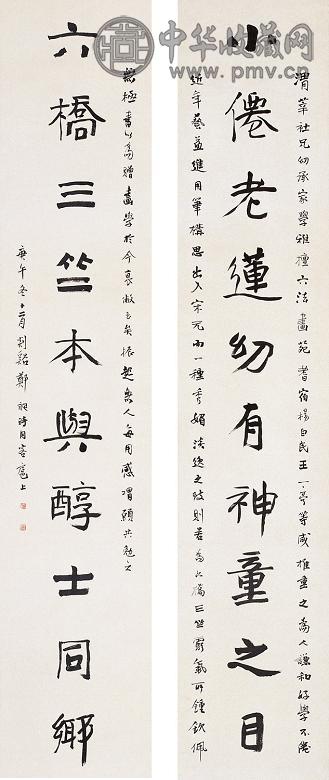 小僊老蓮幼有神童之目
六橋三竺本與醇士同鄉
社兄幼承家學雅擅六法畫苑耆宿楊白民王一亭等咸推重之為人謙和好學不倦
近年藝益進用筆構思出入宋元而一種秀媚淡逸之致則若為六橋三竺靈氣所鍾欽佩
無極書此為贈畫學於今衰敝甚矣振起無人每用感喟願共勉之
庚午冬十二月剡谿鄭昶時同客滬上
中华收藏网
www.pmv.cn